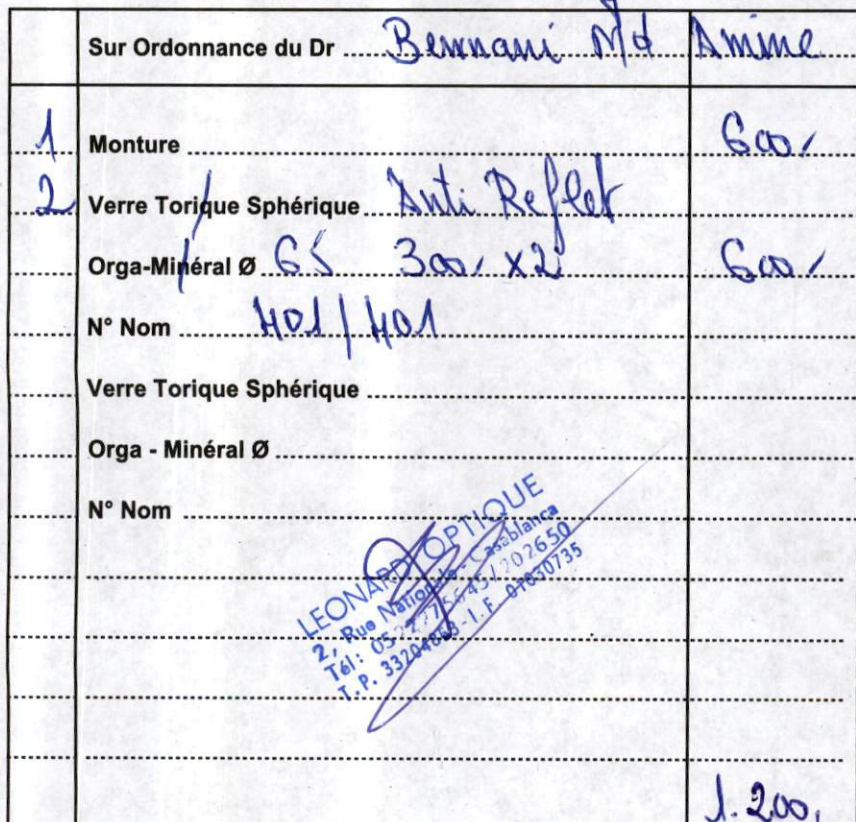 Sur Ordonnance du Dr Bennani Md Amine
1 Monture 600,
2 Verre Torique Sphérique Anti Reflet
Orga-Minéral Ø 65 300, x2 600,
N° Nom 401/401
Verre Torique Sphérique
Orga - Minéral Ø
N° Nom
LEONARD OPTIQUE
2, Rue Nationale - Casablanca
Tél: /202650
T.P. - I.F. 01030735
1.200,